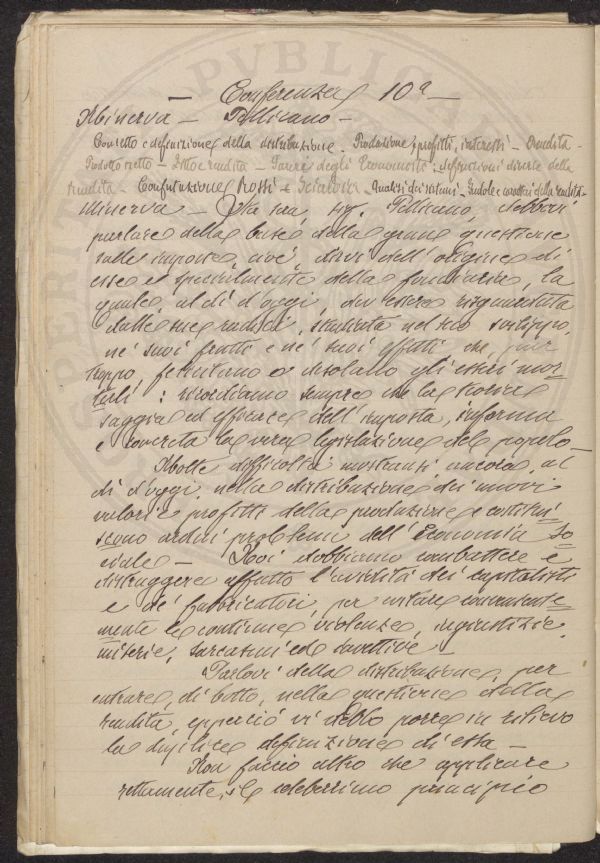 — Conferenza 10ª —
Minerva — Pellicano —
Concetto e definizione della distribuzione — Produzione, profitti, interessi — Rendita —
Prodotto netto — Fitto e rendita — Parere degli Economisti: definizioni diverse della
rendita — Confutazione Rossi — Scialoia — Analisi dei sistemi — Indole e caratteri della rendita —
Minerva — sig. Pellicano, debbovi
parlare della base della grave questione
sulle imposte, cioè, dirvi dell'origine di
esse e specialmente della fondiaria, la
quale, al dì d'oggi, dev'essere risguardata
dalle sue radici, studiata nel suo sviluppo,
ne' suoi frutti e ne' suoi effetti che, pur
troppo, felicitano o desolano gli esseri mor-
tali: ricordiamo sempre che la teoria
saggia ed efficace dell'imposta, informa
e la vera legislazione del popolo —
Molte difficoltà mostransi ancora, al
dì d'oggi, nella distribuzione dei nuovi
valori e profitti della produzione e costitui-
scono ardui problemi dell'Economia So-
ciale — Noi dobbiamo combattere e
distruggere affatto l'avidità dei capitalisti
e de' fabbricatori, per evitare conveniente-
mente le continue violenze, ingiustizie,
miserie, sarcasmi ed invettive —
Parlovi della distribuzione, per
entrare, di botto, nella questione della
rendita, epperciò vi debbo porre in rilievo
la duplice definizione di essa —
Non faccio altro che applicare
rettamente, il celeberrimo principio